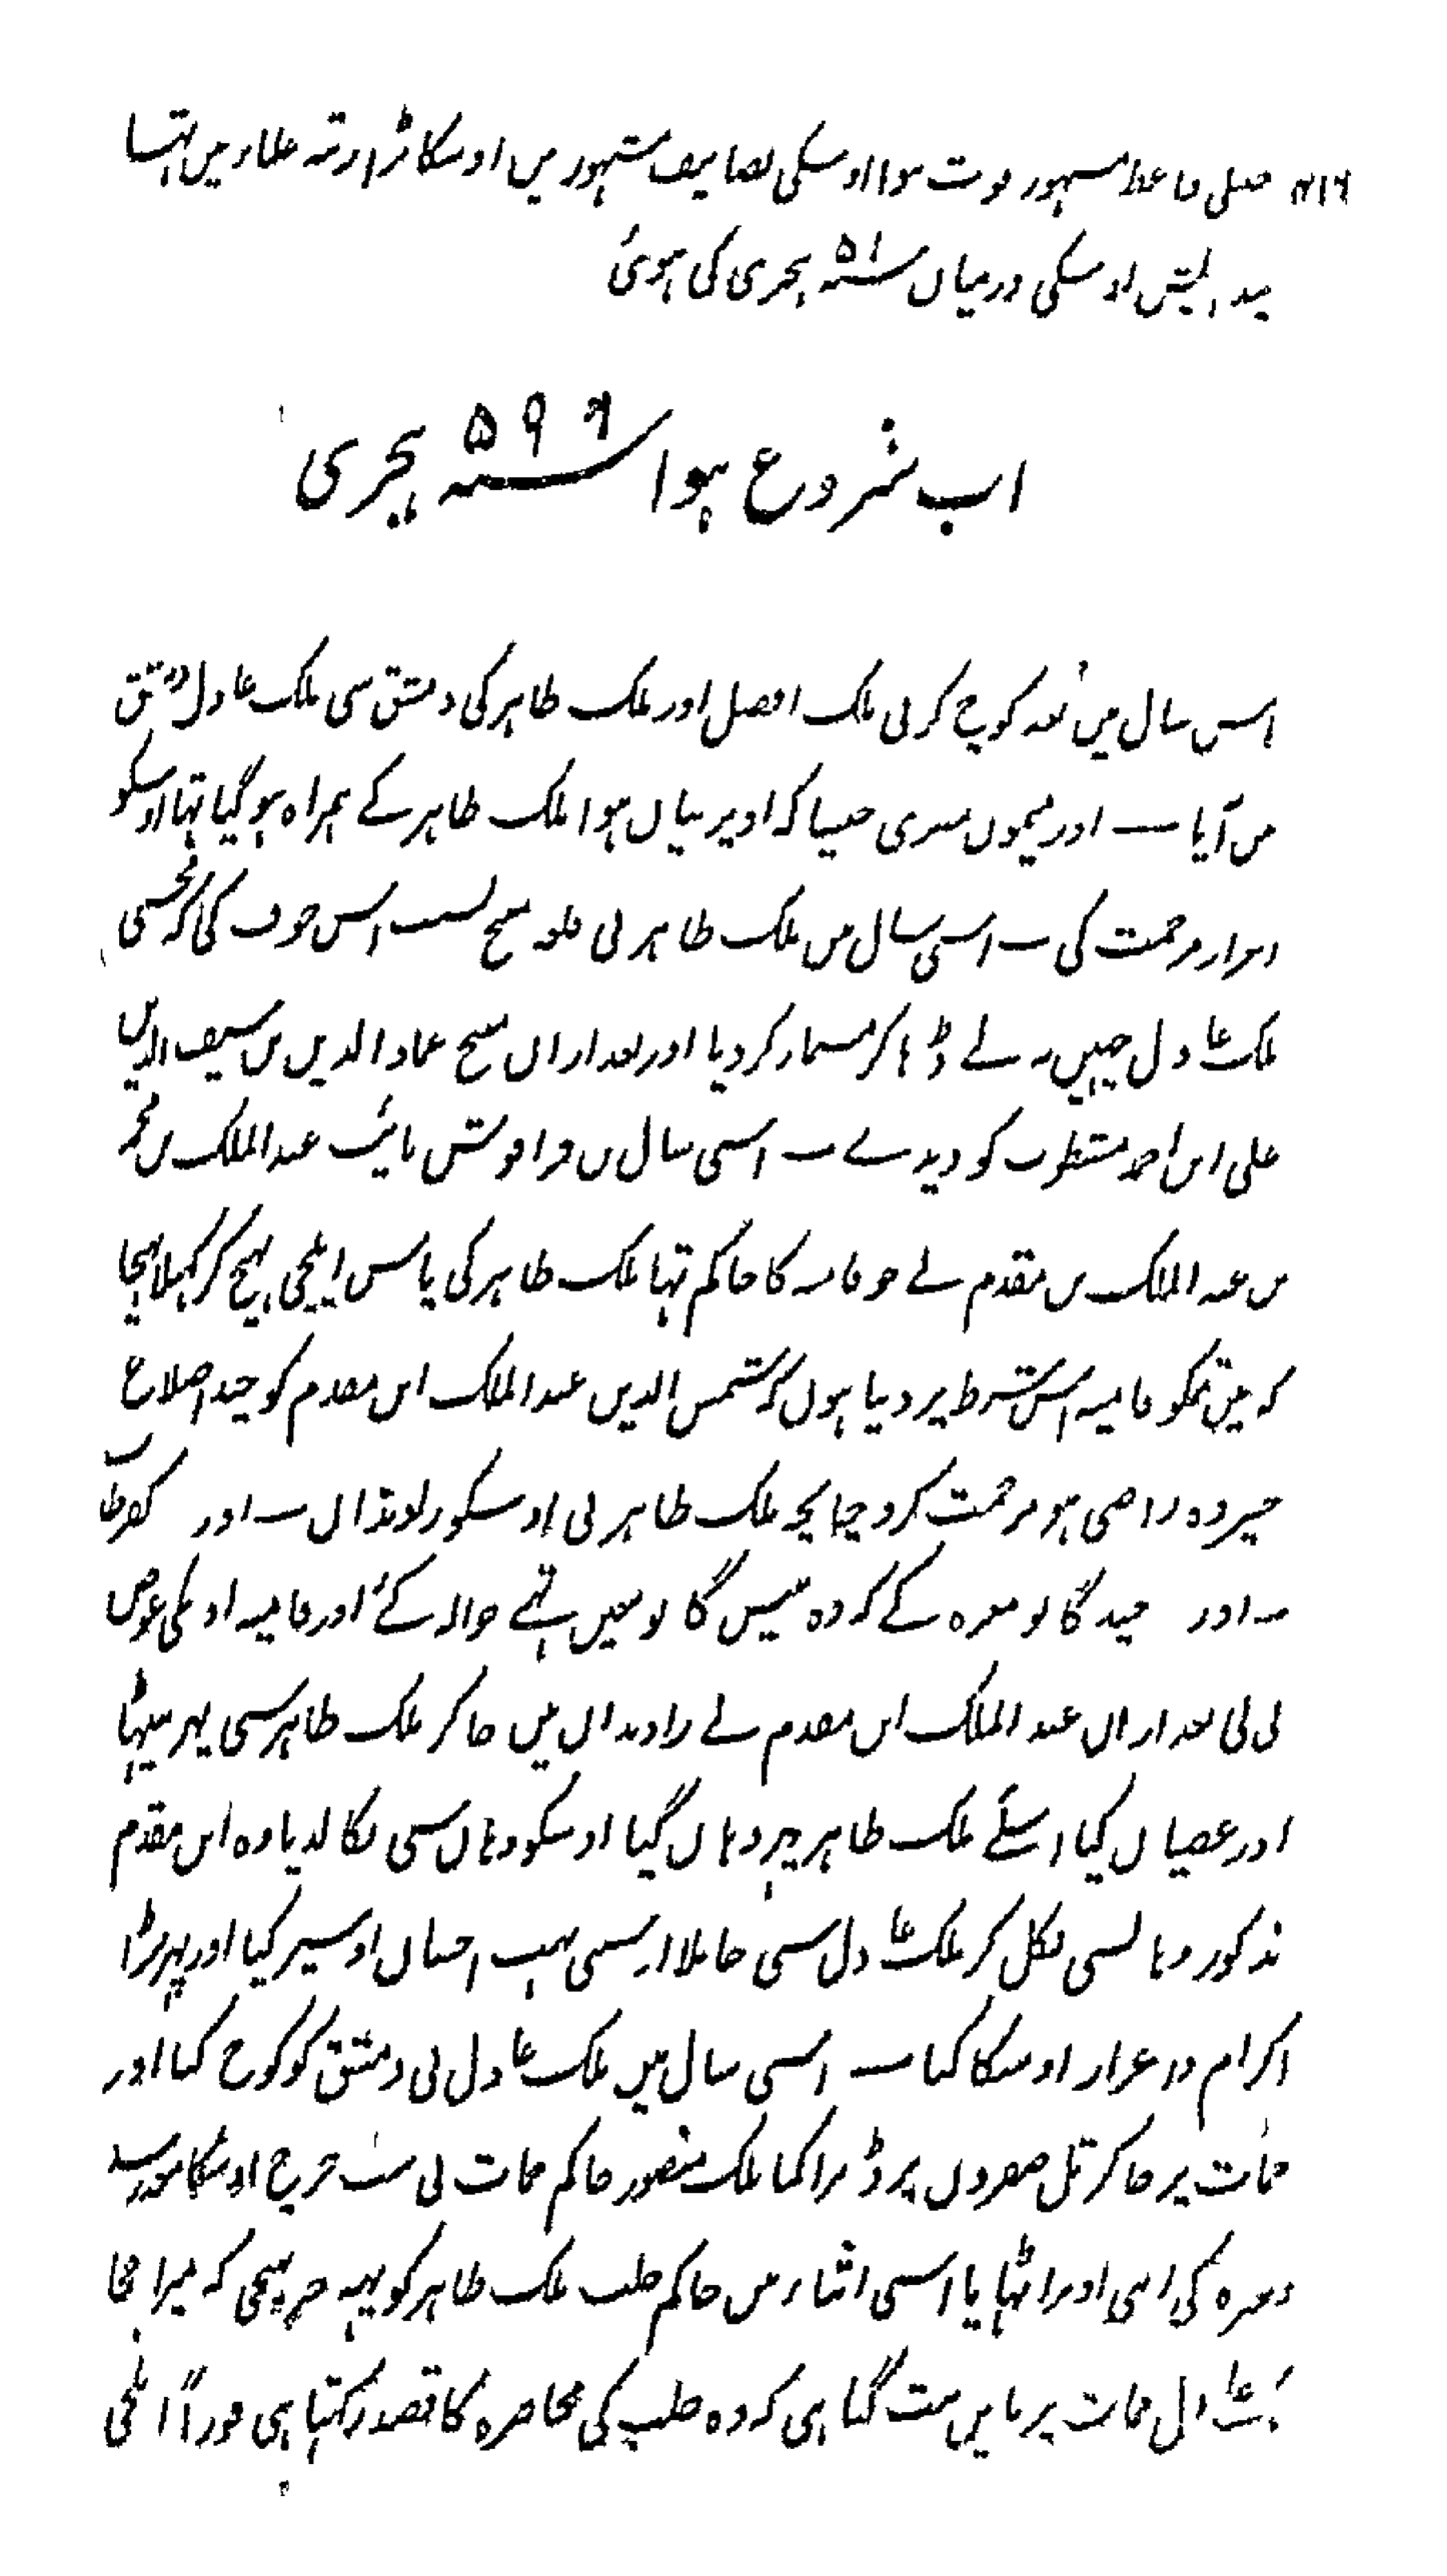 حنبلی واعظ مشہور فوت ہوا اوسکی تصانیف مشہور ہیں اوسکا بڑا رتبہ علماء میں تہا
پیدایش اوسکی درمیان سنہ ۵۱ ہجری کی ہوئی
اب شروع ہوا سنہ ۵۹۸ ہجری
اس سال میں بعد کوچ کرنی ملک افضل اور ملک ظاہر کی دمشق سی ملک عادل دمشق
میں آیا ۔ اور میمون قصری جیسا کہ اوپر بیان ہوا ملک ظاہر کے ہمراہ ہو گیا تہا اوسکو
اعزاز مرحمت کی ۔ اسی سال میں ملک ظاہر نی قلعہ منبج بسبب اس خوف کی کہ مجسی
ملک عادل چہین نہ لے ڈہا کر مسمار کردیا اور بعد ازان منبج عماد الدین بن سیف الدین
علی ابن احمد مشطوب کو دیدے ۔ اسی سال میں قراقوش نایب عبد الملک بن محمد
بن عبد الملک بن مقدم نے جو فامیہ کا حاکم تہا ملک ظاہر کی پاس ایلچی بہیج کر کہلا بہیجا
کہ میں تمکو فامیہ اس شرط پر دیتا ہوں کہ شمس الدین عبد الملک ابن مقدم کو چند اضلاع
جسپر وہ راضی ہو مرحمت کرو چنانچہ ملک ظاہر نی اوسکو راوندان ۔ اور کفرطاب
۔ اور چند گانو معرہ کے کہ وہ بیس گانو معین تہے حوالہ کئے اور فامیہ اوسکی عوض
لی لی بعد ازان عبد الملک ابن مقدم نے راوندان میں جا کر ملک ظاہر سی پہر بیٹہا
اور عصیان کیا اسلئے ملک ظاہر پہر وہان گیا اوسکو وہان سی نکالدیا وہ ابن مقدم
مذکور وہانسی نکل کر ملک عادل سی جا ملا اسی بہت احسان اوسپر کیا اور بہر بڑا
اکرام و اعزاز اوسکا کیا ۔ اسی سال میں ملک عادل نی دمشق کو کوچ کیا اور
حمات پر جا کر تل صفرون پر ڈیرا کیا ملک منصور حاکم حمات نی سب خرچ اوسکا سور رسد
وغیرہ کی اپنی اوپر اوٹہایا اسی اثناء میں حاکم حلب ملک ظاہر کو یہہ خبر پہنچی کہ میرا چچا
ملک عادل حمات پر باین نیت گیا ہی کہ وہ حلب کی محاصرہ کا قصد رکہتا ہی فوراً ایلچی